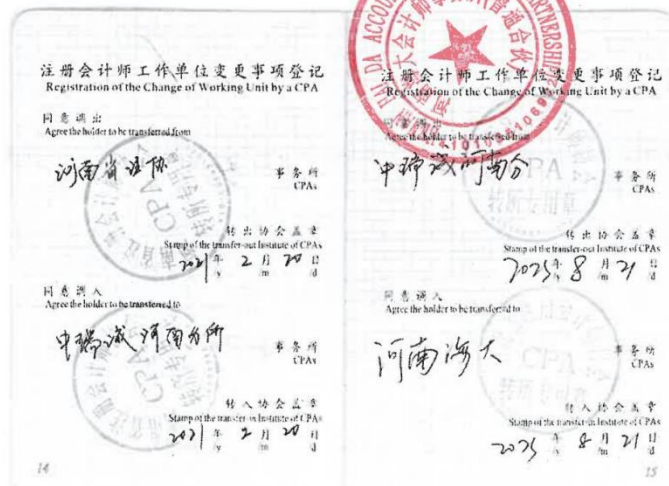 注册会计师工作单位变更事项登记
Registration of the Change of Working Unit by a CPA
同意调出
Agree the holder to be transferred from
河南省注协
事务所
CPAs
转出协会盖章
Stamp of the transfer-out Institute of CPAs
2021 年 2 月 20 日
/y /m /d
同意调入
Agree the holder to be transferred to
中瑞诚河南分所
事务所
CPAs
转入协会盖章
Stamp of the transfer-in Institute of CPAs
2021 年 2 月 20 日
/y /m /d
14
注册会计师工作单位变更事项登记
Registration of the Change of Working Unit by a CPA
同意调出
Agree the holder to be transferred from
中瑞诚河南分
事务所
CPAs
转出协会盖章
Stamp of the transfer-out Institute of CPAs
2025 年 8 月 21 日
/y /m /d
同意调入
Agree the holder to be transferred to
河南海大
事务所
CPAs
转入协会盖章
Stamp of the transfer-in Institute of CPAs
2025 年 8 月 21 日
/y /m /d
15
CPA
转所专用章